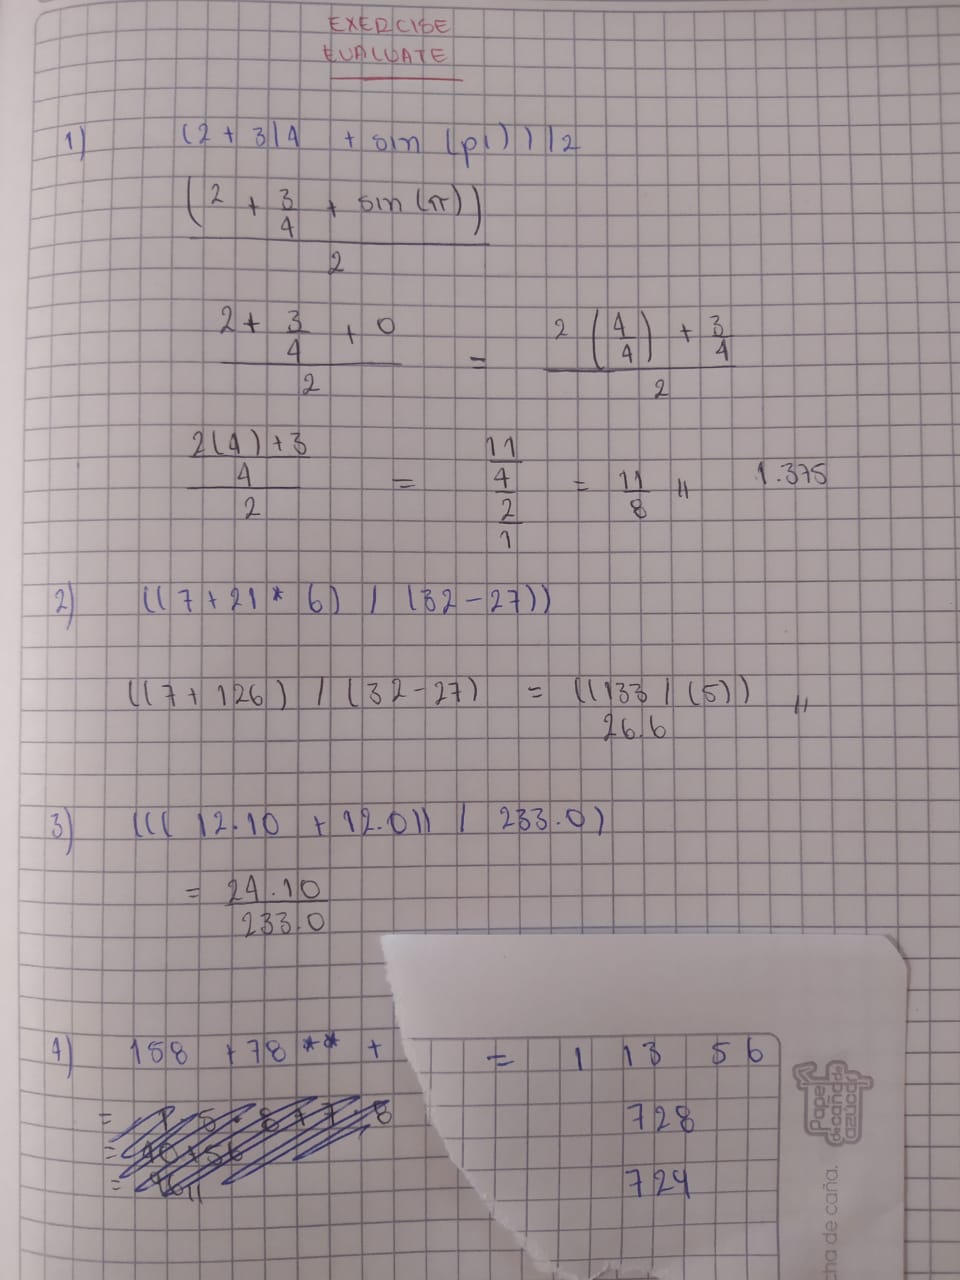 EXERCISE
EVALUATE
1) (2 + 3/4 + sin (pi)) / 2
(2 + 3/4 + sin (π)) / 2
(2 + 3/4 + 0) / 2 = (2 (4/4) + 3/4) / 2
((2(4) + 3) / 4) / 2 = (11/4) / (2/1) = 11/8 " 1.375
2) ((7+21 * 6) / (32-27))
((7+ 126) / (32-27) = ((133 / (5)) "
26.6
3) ((( 12.10 + 12.0)) / 233.0)
= 24.10 / 233.0
4) 158 + 78 ** + = 1 13 56
728
724
Papel
de caña de
azúcar
ha de caña.